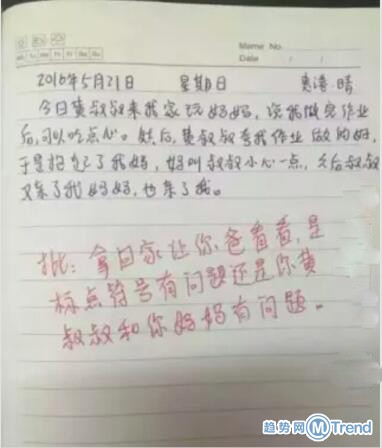 Meme No.
Date
Mo Tu We Th Fr Sa Su
2016年5月21日 星期日 晴
今日黄叔叔来我家玩妈妈，说我做完作业
后，可以吃点心。然后，黄叔叔夸我作业做的好，
于是抱起了我妈，妈叫叔叔小心一点，之后叔叔
又亲了我妈妈，也亲了我。
批：拿回家让你爸看看，是
标点符号有问题还是你黄
叔叔和你妈妈有问题。
趋势网 M Trend